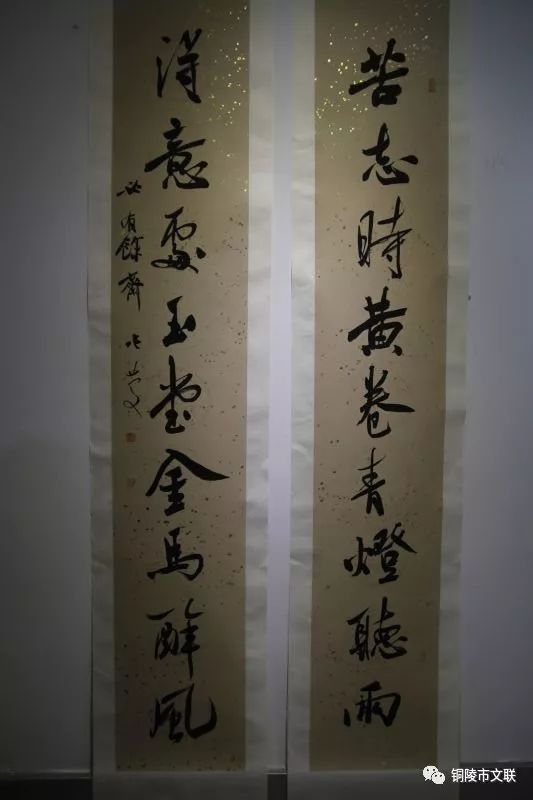 苦志時黄卷青燈聽雨
得意處玉堂金馬醉風
有餘齋
铜陵市文联